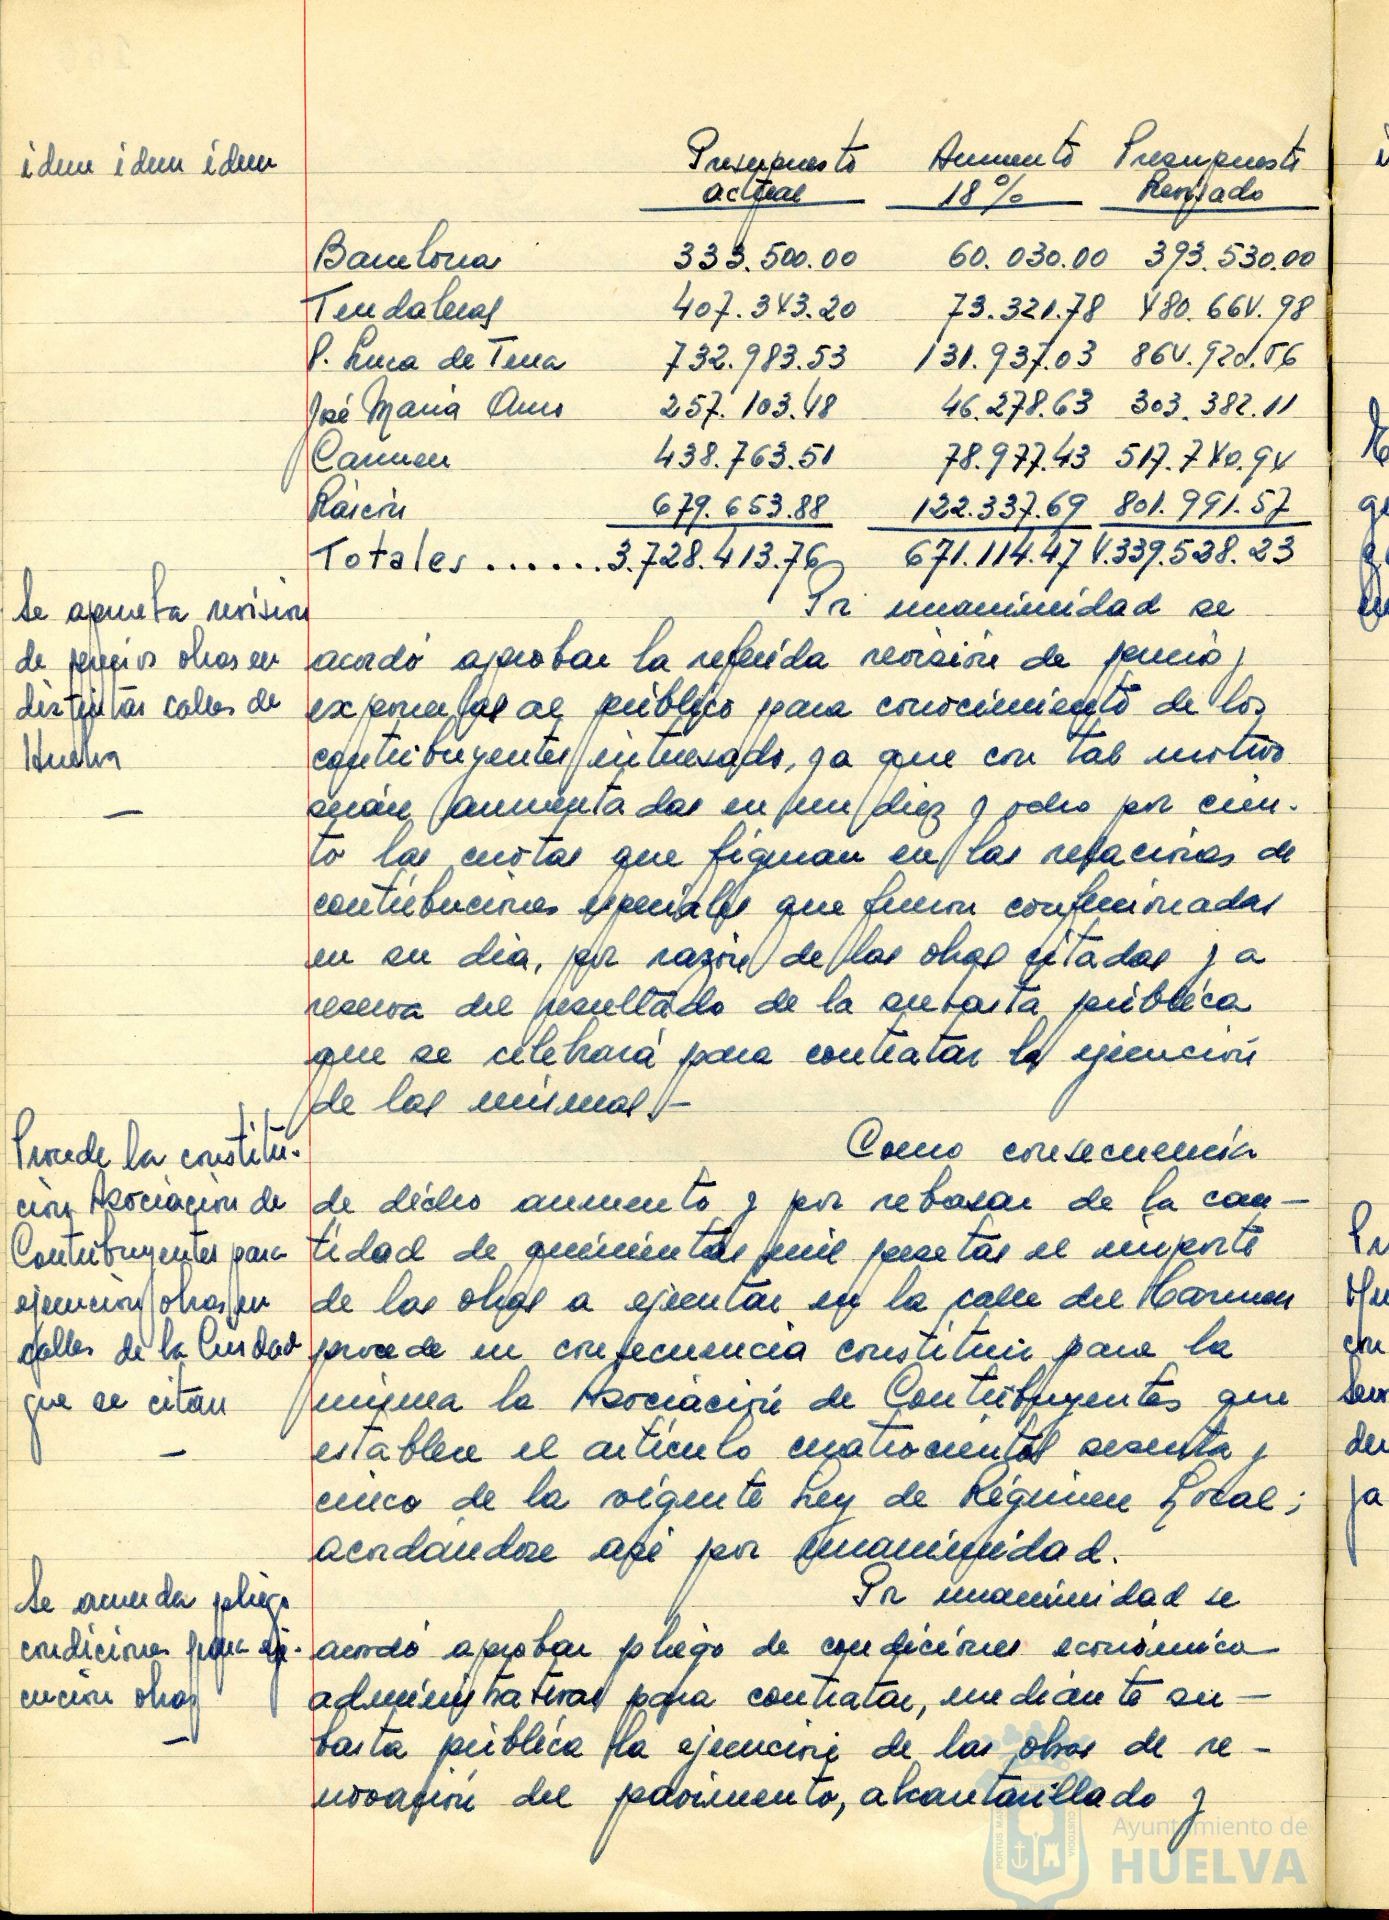 idem idem idem
Presupuesto actual Aumento 18% Presupuesto Revisado
Barcelona 333.500.00 60.030.00 393.530.00
Tendaleras 407.343.20 73.321.78 480.664.98
P. Luca de Tena 732.983.53 131.937.03 864.920.56
José Maria Amo 257.103.48 46.278.63 303.382.11
Carmen 438.763.51 78.977.43 517.740.94
Rascón 679.653.88 122.337.69 801.991.57
Totales ...... 3.728.413.76 671.114.47 4.339.528.23
Se aprueba revision
de precios obras en
distintas calles de
Huelva
—
Por unanimidad se
acordó aprobar la referida revisión de precio y
exponerlas al público para conocimiento de los
contribuyentes interesado, ya que con tal motivo
serán aumentadas en un diez y ocho por cien-
to las cuotas que figuran en las relaciones de
contribuciones especiales que fueron confeccionadas
en su dia, por razón de las obras citadas y a
reserva del resultado de la subasta pública
que se celebrará para contratar la ejecución
de las mismas.-
Procede la constitu-
ción Asociación de
Contribuyentes para
ejecución obras en
calles de la Ciudad
que se citan
—
Como consecuencia
de dicho aumento y por rebasar de la can-
tidad de quinientas mil pesetas el importe
de las obras a ejecutar en la calle del Carmen
procede en consecuencia constituir para la
misma la Asociación de Contribuyentes que
establece el artículo cuatrocientos sesenta y
cinco de la vigente Ley de Régimen Local;
acordándose asi por unanimidad.
Se acuerda pliego
condiciones para eje-
cución obras
—
Por unanimidad se
acordó aprobar pliego de condiciones económico
administrativas para contratar, mediante su-
basta pública la ejecución de las obras de re-
novación del pavimento, alcantarillado y
Ayuntamiento de
HUELVA